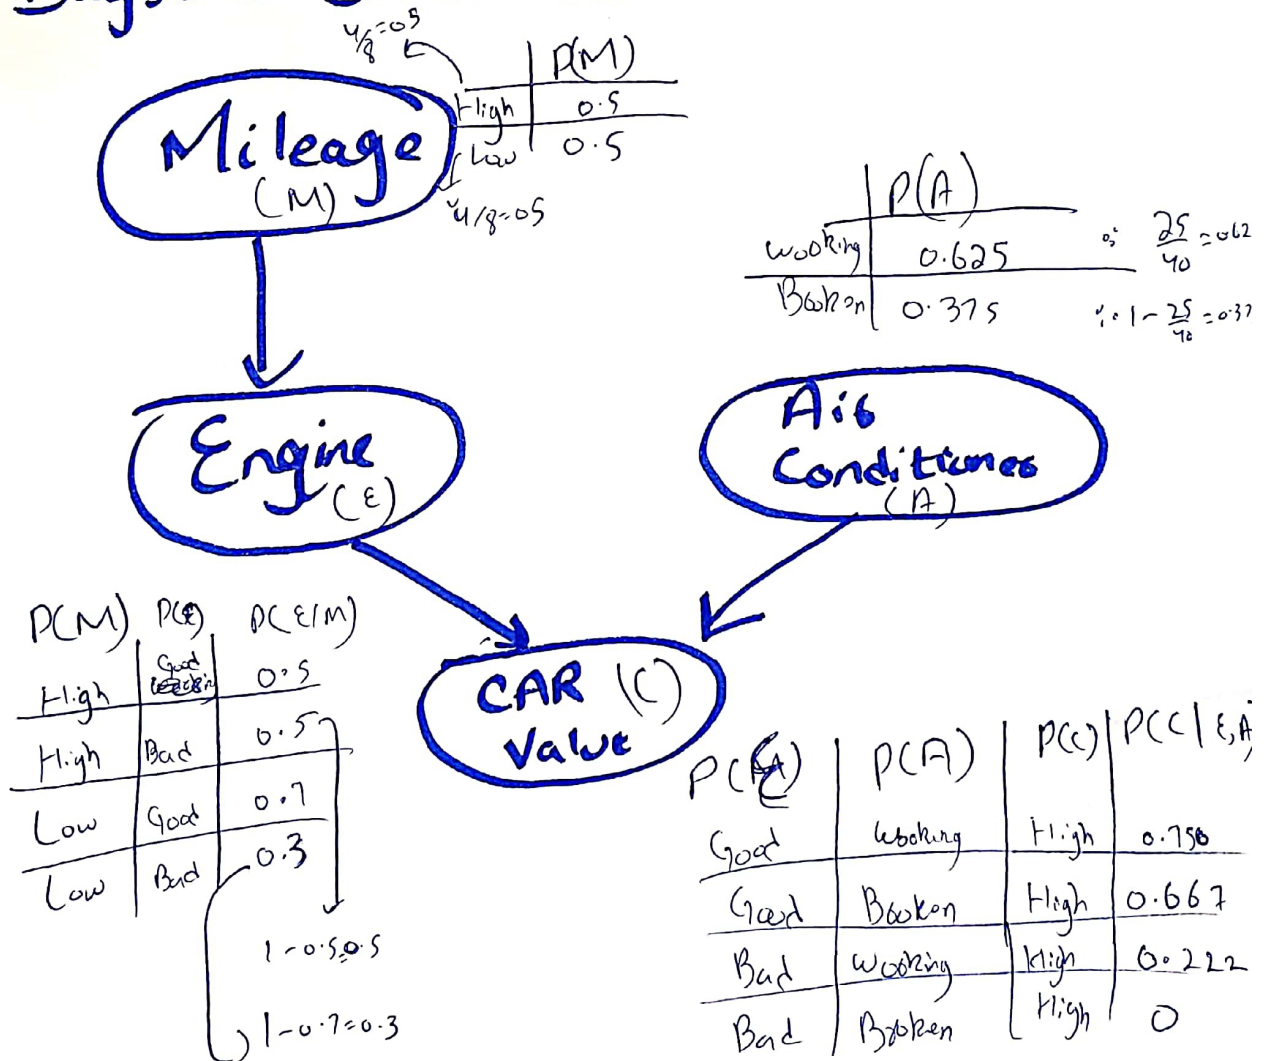 4/8=05
P(M)
High 0.5
Low 0.5
4/8=05
Mileage
(M)
P(A)
Wooking 0.625 ∵ 25/40 = 062
Booken 0.375 ∵ 1 - 25/40 = 0.37
Engine
(E)
Air
Conditioner
(A)
P(M) P(E) P(E/M)
High Good 0.5
High Bad 0.5
Low Good 0.7
Low Bad 0.3
1-0.5=0.5
1-0.7=0.3
CAR (C)
Value
P(E) P(A) P(C) P(C|E,A)
Good Wooking High 0.750
Good Booken High 0.667
Bad Wooking High 0.222
Bad Broken High 0